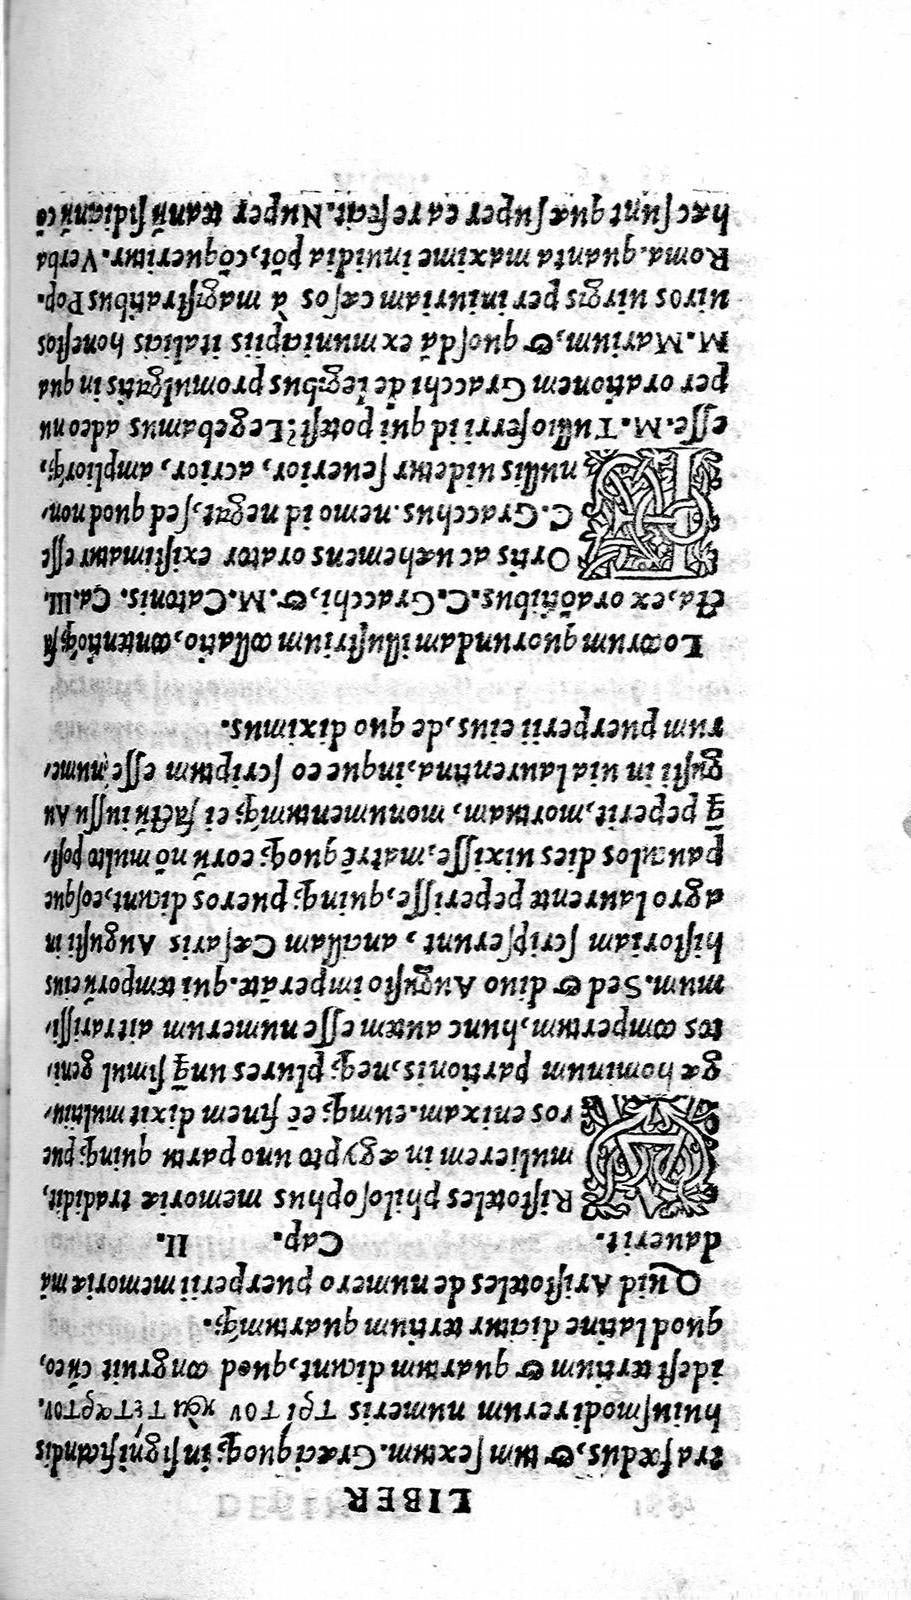 LIBER
tra fœdus, & tum sextum. Græci quoq; in significandis
huiuſmodi rerum numeris τρίτον καὶ τέταρτον.
ideſt tertium & quartum dicunt, quod congruit cũ eo,
quod latine dicitur tertium quartumq́;.
Quid Ariſtoteles de numero puerperii memoriæ mã
dauerit. Cap. II.
ARiſtoteles philoſophus memoriæ tradidit,
mulierem in ægypto uno partu quinq; pue
ros enixam. eumq; eẽ finem dixit multiiu-
gæ hominum partionis, neq; plures unq̃ ſimul geni-
tos compertum, hunc autem eſſe numerum ait rariſſi-
mum. Sed & diuo Auguſto imperãte. qui temporũ eius
hiſtoriam ſcripſerunt, ancillam Cæſaris Auguſti in
agro laurente peperiſſe, quinq; pueros dicunt, eoſque
pauculos dies uixiſſe, matrẽ quoq; eorũ nõ multo poſt-
q̃ peperit, mortuam, monumentumq́; ei factũ iuſſu Au
guſti in uia laurentina, inque eo ſcriptum eſſe nume-
rum puerperii eius, de quo diximus.
Locorum quorundam illuſtrium collatio, contentioq́; fa
cta, ex oratiõibus. C. Gracchi, & . M. Catonis. Ca. III.
FOrtis ac uehemens orator exiſtimatur eſſe
C. Gracchus. nemo id negat, ſed quod non-
nullis uidetur ſeuerior, acrior, ampliorq́;,
eſſe. M. Tullio ferri id qui poteſt? Legebamus adeo nu
per orationem Gracchi de legibus promulgatis in qua
M. Marium, & quoſdã ex municipiis italicis honeſtos
uiros uirgis per iniuriam cæſos à magiſtratibus Pop.
Roma. quanta maxime inuidia põt, cõqueritur. Verba
hæc ſunt quæ ſuper ea re fecit. Nuper teanũ ſidicinũ cõ